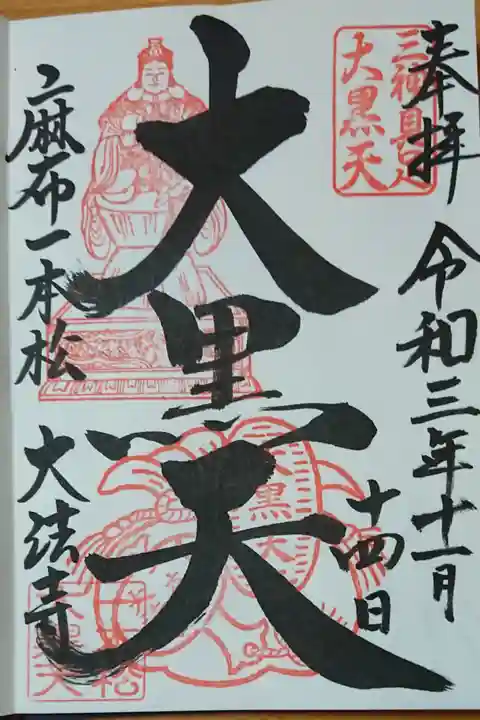 奉拝
令和三年十一月
十四日
三神具足
大黒天
大黒天
大黒天
麻布一本松
大法寺